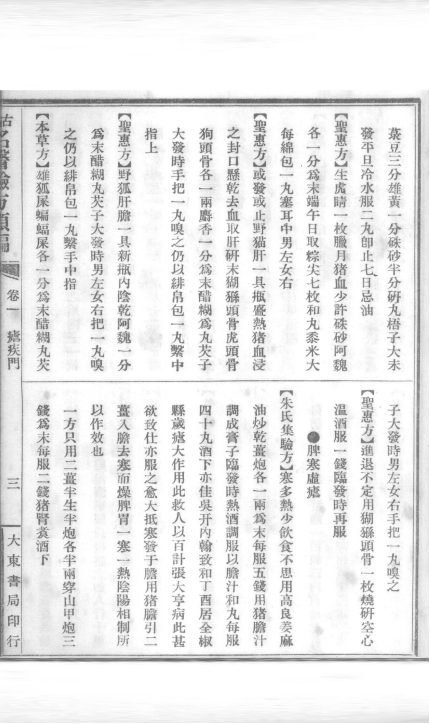 菉豆三分雄黃一分硃砂半分研丸梧子大未
發平旦冷水服二丸卽止七日忌油
【聖惠方】生虎睛一枚臘月猪血少許硃砂阿魏
各一分爲末端午日取粽尖七枚和丸黍米大
每綿包一丸塞耳中男左女右
【聖惠方】或發或止野猫肝一具瓶盛熱猪血浸
之封口懸乾去血取肝硏末猢猻頭骨虎頭骨
狗頭骨各一兩麝香一分爲末醋糊爲丸芡子
大發時手把一丸嗅之仍以緋帛包一丸繫中
指上
【聖惠方】野狐肝膽一具新瓶內陰乾阿魏一分
爲末醋糊丸芡子大發時男左女右把一丸嗅
之仍以緋帛包一丸繫手中指
【本草方】雄狐屎蝙蝠屎各一分爲末醋糊丸芡
子大發時男左女右手把一丸嗅之
【聖惠方】進退不定用猢猻頭骨一枚燒研空心
溫酒服一錢臨發時再服
●脾寒虛瘧
【朱氏集驗方】寒多熱少飮食不思用高良姜麻
油炒乾薑炮各一兩爲末每服五錢用猪膽汁
調成膏子臨發時熱酒調服以膽汁和丸每服
四十丸酒下亦佳吳幵內翰致和丁酉居全椒
縣歲瘧大作用此救人以百計張大亨病此甚
欲致仕亦服之愈大抵寒發于膽用猪膽引二
薑入膽去寒而燥脾胃一寒一熱陰陽相制所
以作效也
一方只用二薑半生半炮各半兩穿山甲炮三
錢爲末每服二錢猪腎煮酒下
古名醫驗方類編
卷一
瘧疾門
三
大東書局印行